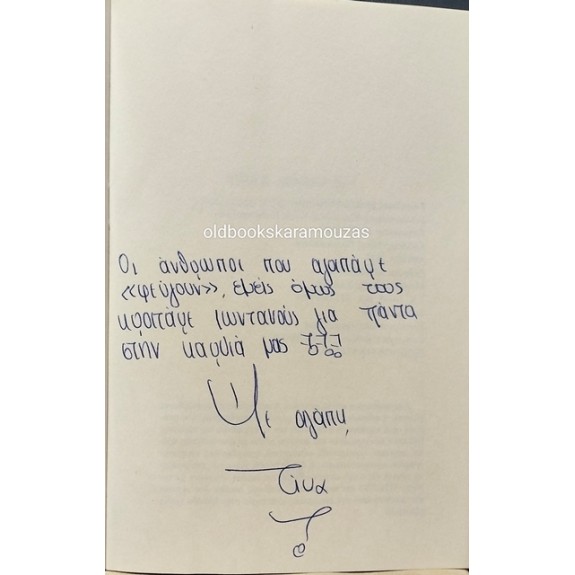 oldbookskaramouzas
Οι άνθρωποι που αγαπάμε
«φεύγουν», εμείς όμως τους
κρατάμε ζωντανούς για πάντα
στην καρδιά μας
Με αγάπη,
Τίνα